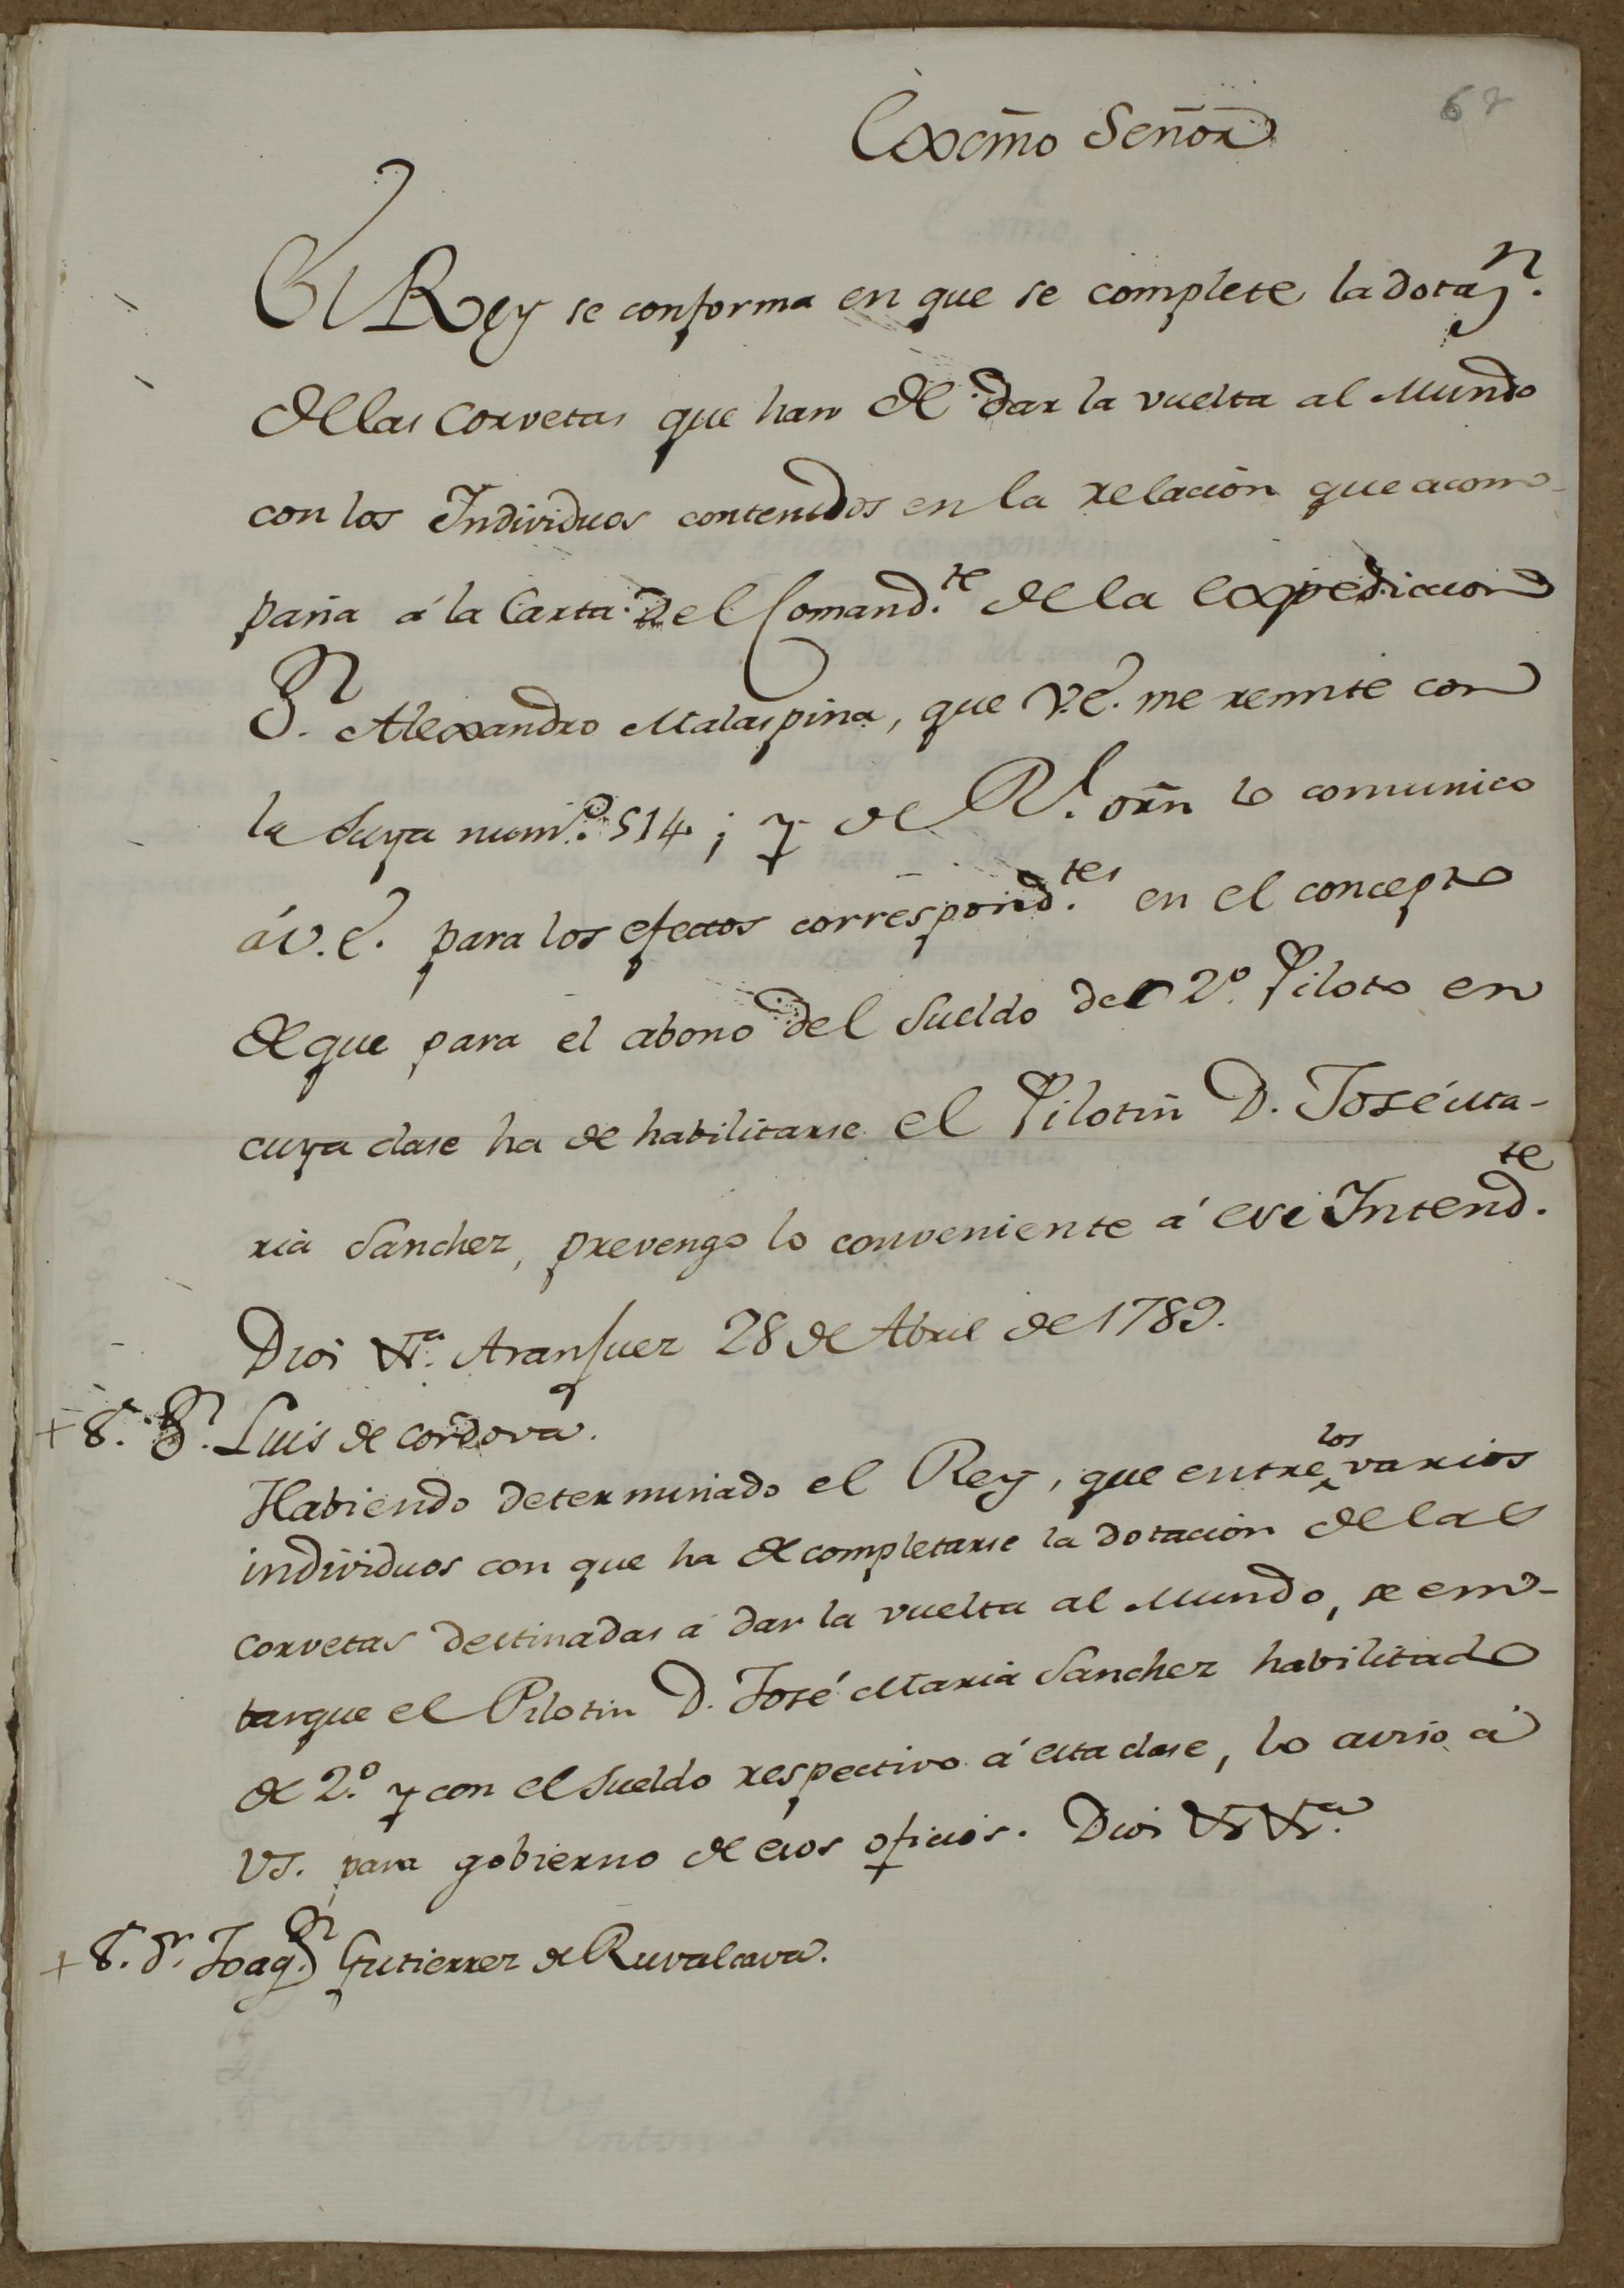 62
Exc̃mo Señor
El Rey se conforma en que se complete la dotaz.n
de las Corvetas que han de dar la vuelta al Mundo
con los Individuos contenidos en la relación que acom-
paña á la Carta del Comand.te de la Expedicion
D.n Alexandro Malaspina, que V.E. me remite con
la suya num.o 514; y de R.l orñ lo comunico
á V.E. para los efectos correspond.tes en el concepto
de que para el abono del Sueldo de 2.o Piloto en
cuya clase ha de habilitarse el Pilotin D. José Ma-
ria Sanchez, prevengo lo conveniente á ese Intend.te
Dios &.a Aranjuez 28 de Abril de 1789.
+ S.r D.n Luis de Cordova.
Habiendo determinado el Rey, que entre los varios
individuos con que ha de completarse la dotación de las
corvetas destinadas á dar la vuelta al Mundo, se em-
barque el Pilotin D. José Maria Sanchez habilitado
de 2.o y con el Sueldo respectivo á esta clase, lo aviso á
VS. para gobierno de esos oficios. Dios &&.a
+ S.r D.n Joaq.n Gutierrez de Ruvalcava.